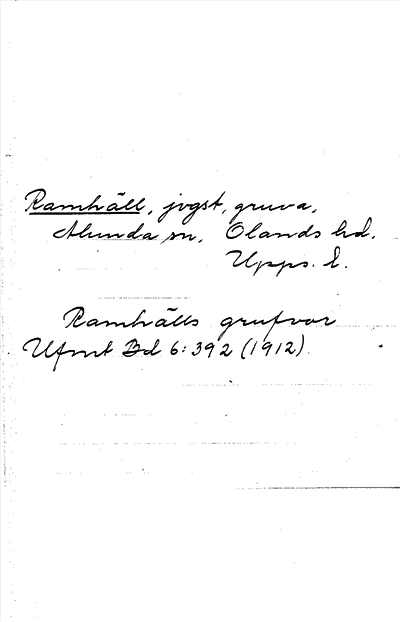 Ramhäll, jvgst, gruva,
Alunda sn, Olands hd.
Upps. l.
Ramhälls grufvor
Ufmt Bd 6:392 (1912)